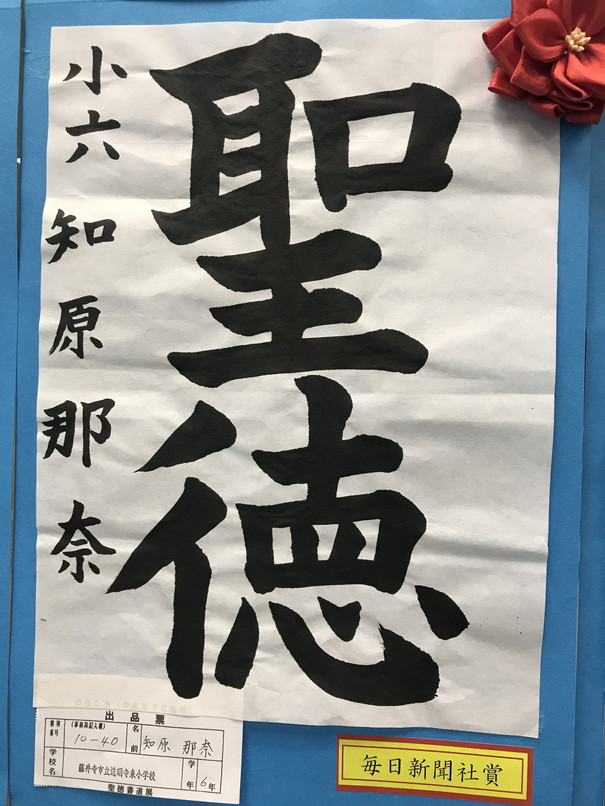 聖徳
小六 知原那奈
出品票
整理番号 (事務局記入欄) 10-40 名前 知原 那奈
学校名 藤井寺市立道明寺東小学校 学年 6年
聖徳書道展
毎日新聞社賞